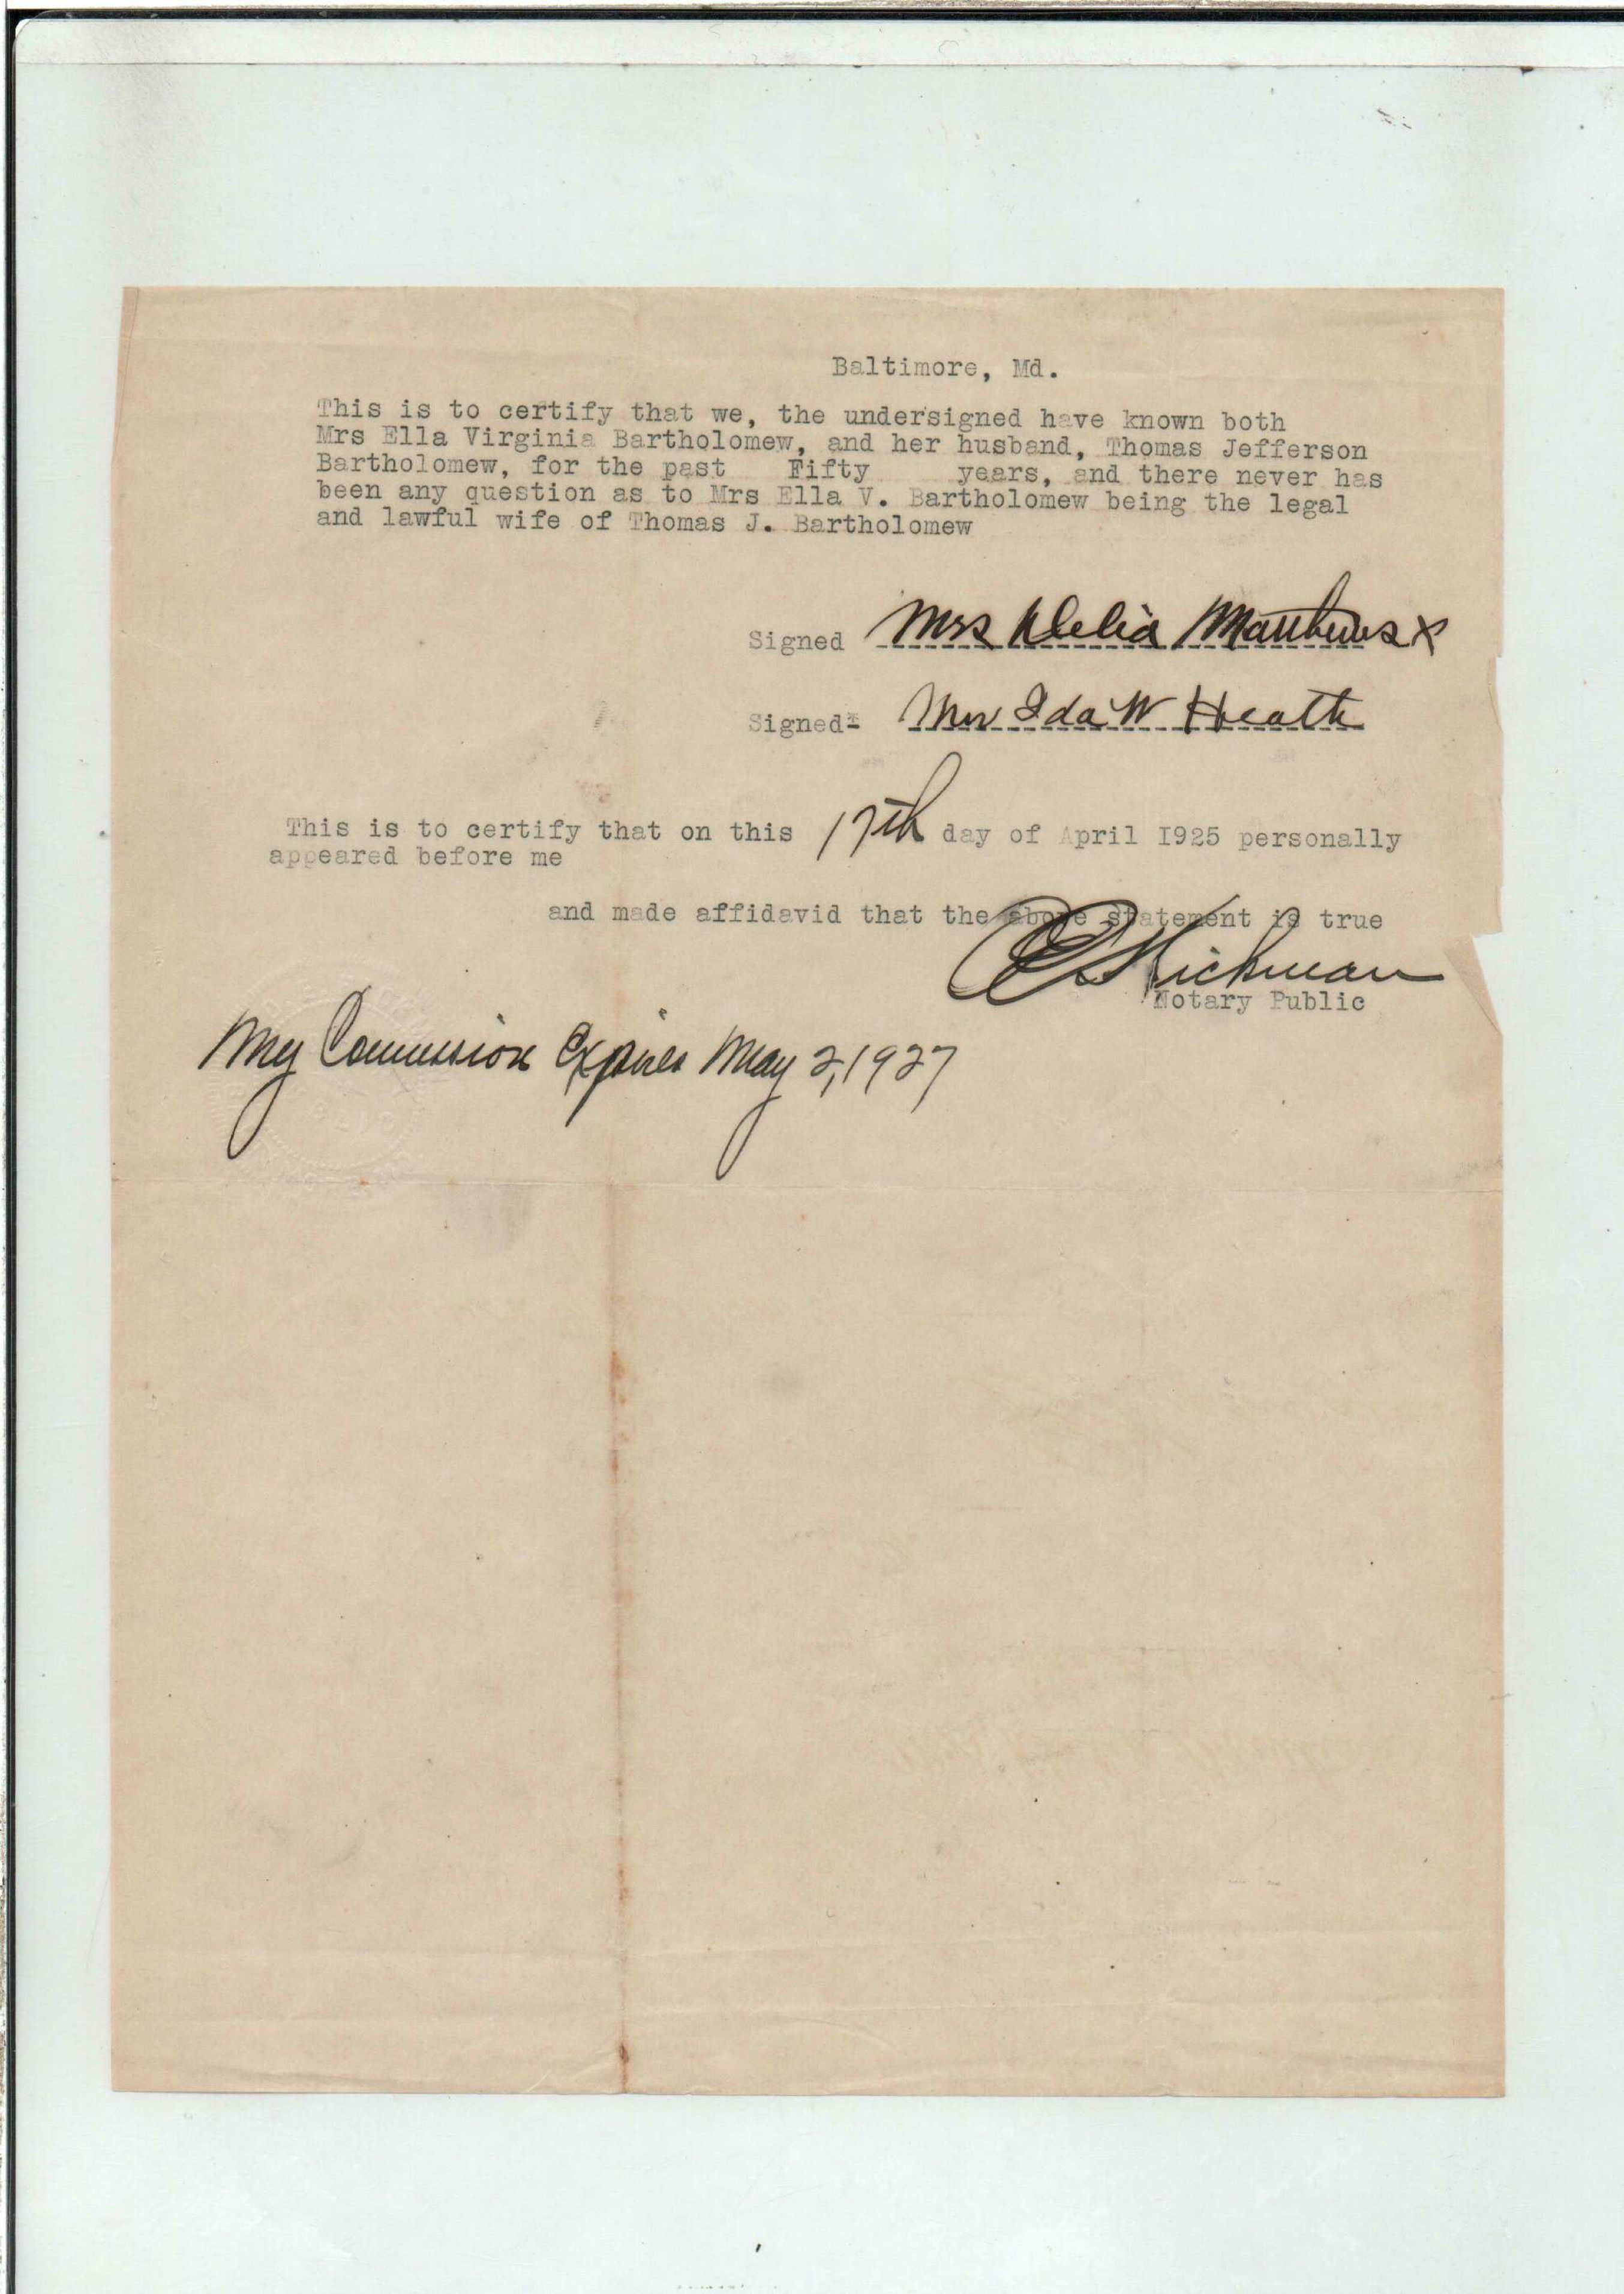 Baltimore, Md.
This is to certify that we, the undersigned have known both
Mrs Ella Virginia Bartholomew, and her husband, Thomas Jefferson
Bartholomew, for the past Fifty years, and there never has
been any question as to Mrs Ella V. Bartholomew being the legal
and lawful wife of Thomas J. Bartholomew
Signed Mrs Delia Matthews x
Signed- Mrs Ida W Heath
This is to certify that on this 17th day of April I925 personally
appeared before me
and made affidavid that the above statement is true
Hickman
Notary Public
My Commission Expires May 2, 1927